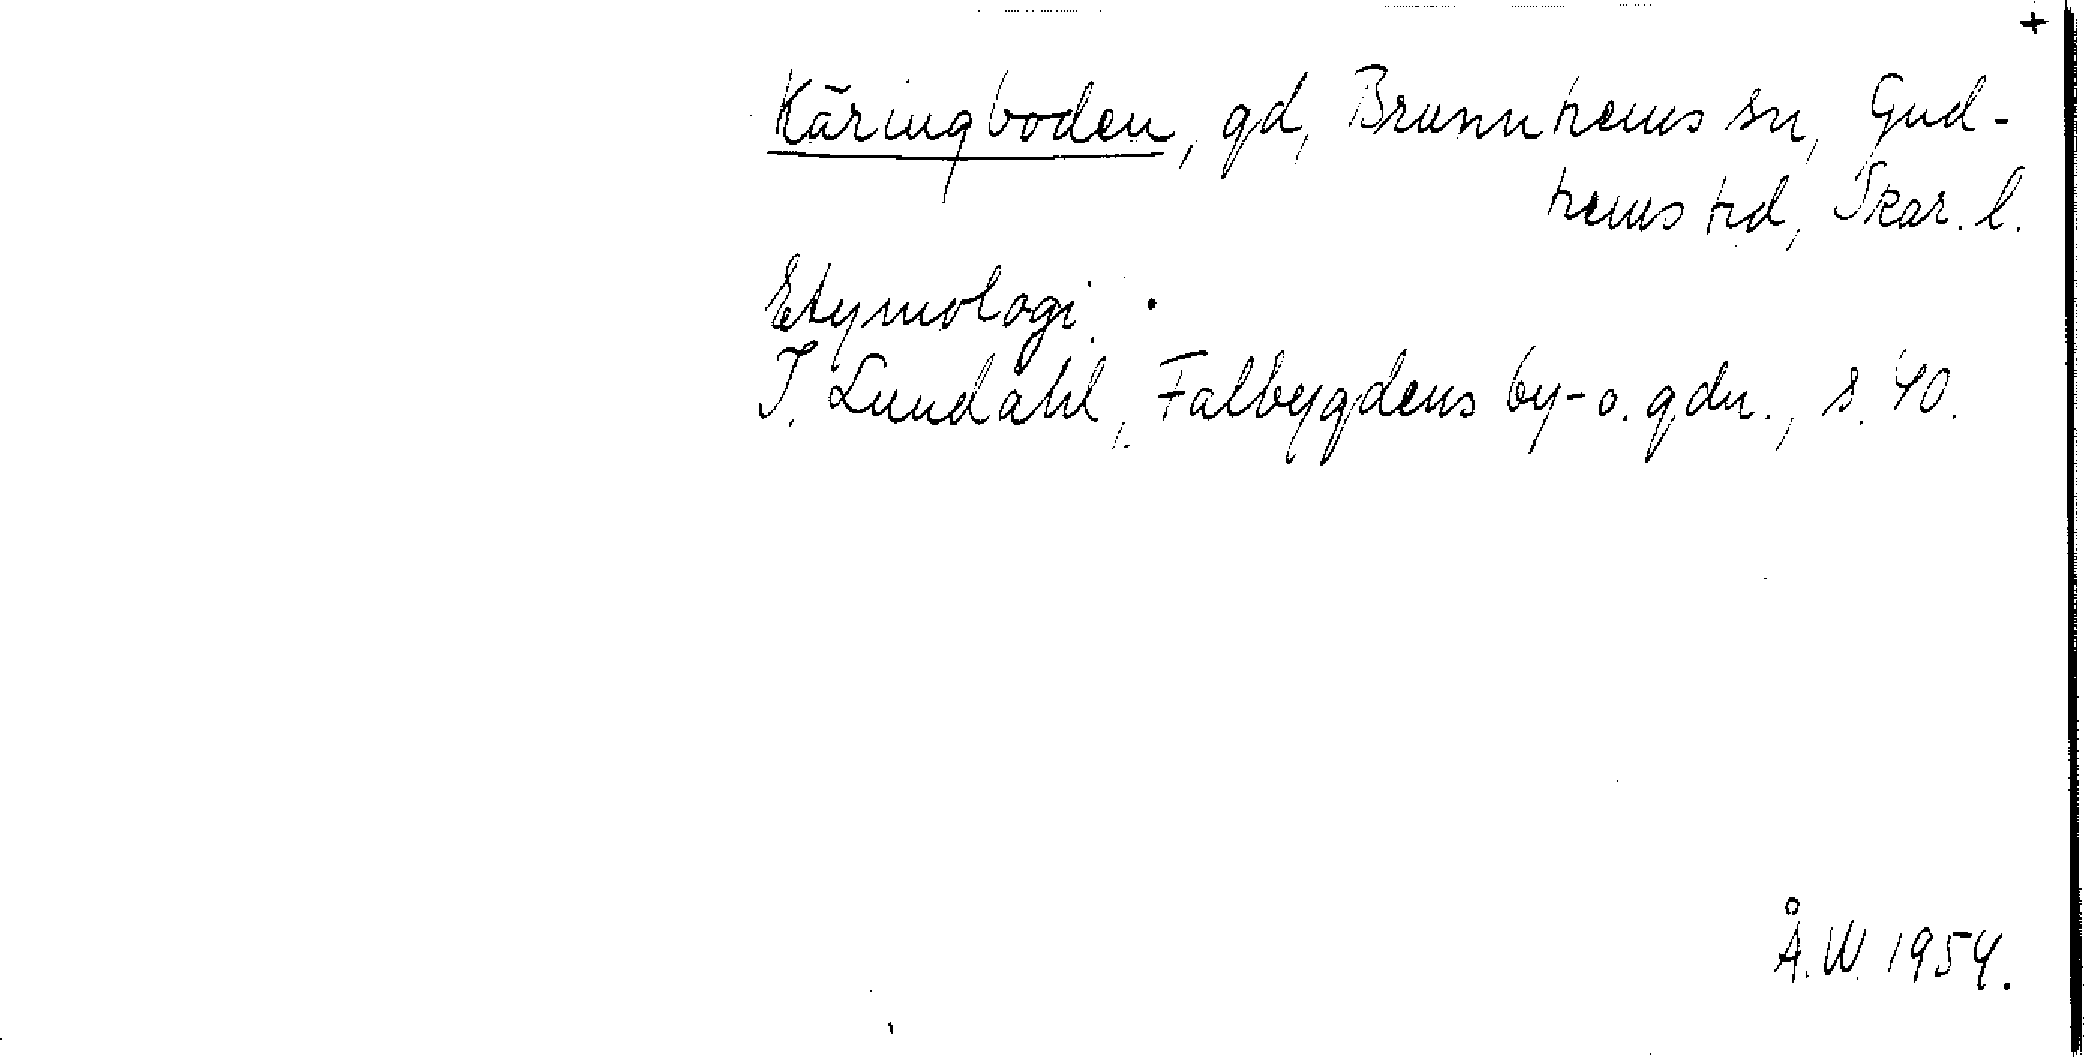 +
Käringboden, gd, Brunnhems sn, Gud-
hems hd, Skar. l.
Etymologi.
I. Lundahl, Falbygdens by- o. gdn., s. 40.
Å.W. 1954.